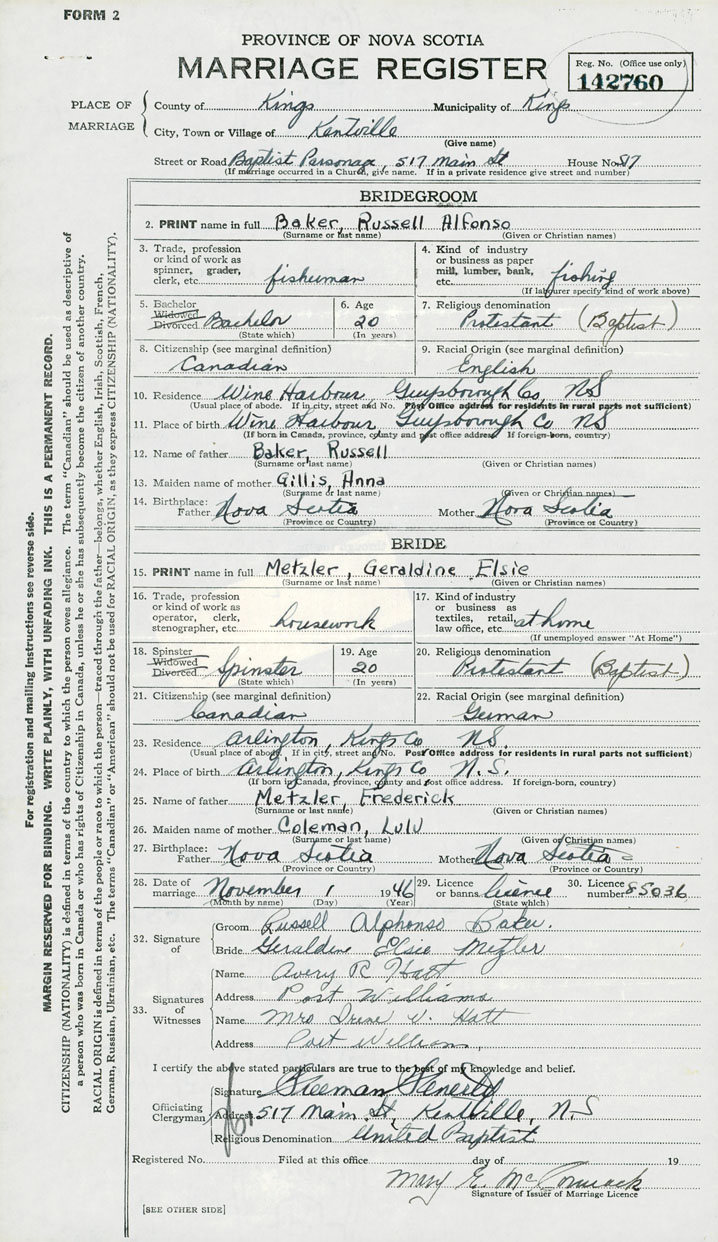 FORM 2
PROVINCE OF NOVA SCOTIA
MARRIAGE REGISTER
Reg. No. (Office use only)
142760
PLACE OF MARRIAGE
County of Kings Municipality of Kings
City, Town or Village of Kentville
(Give name)
Street or Road Baptist Parsonage, 517 Main St House No. 517
(If marriage occurred in a Church, give name. If in a private residence give street and number)
BRIDEGROOM
2. PRINT name in full Baker, Russell Alfonso
(Surname or last name) (Given or Christian names)
3. Trade, profession or kind of work as spinner, grader, clerk, etc. fisherman
4. Kind of industry or business as paper mill, lumber, bank, etc. fishing
(If labourer specify kind of work above)
5. Bachelor Widowed Divorced Bachelor
(State which)
6. Age 20
(In years)
7. Religious denomination Protestant (Baptist)
8. Citizenship (see marginal definition) Canadian
9. Racial Origin (see marginal definition) English
10. Residence Wine Harbour, Guysborough Co, NS
(Usual place of abode. If in city, street and No. Post Office address for residents in rural parts not sufficient)
11. Place of birth Wine Harbour, Guysborough Co. NS
(If born in Canada, province, county and post office address If foreign-born, country)
12. Name of father Baker, Russell
(Surname or last name) (Given or Christian names)
13. Maiden name of mother Gillis, Anna
(Surname or last name) (Given or Christian names)
14. Birthplace: Father Nova Scotia Mother Nova Scotia
(Province or Country) (Province or Country)
BRIDE
15. PRINT name in full Metzler, Geraldine Elsie
(Surname or last name) (Given or Christian names)
16. Trade, profession or kind of work as operator, clerk, stenographer, etc. housework
17. Kind of industry or business as textiles, retail, law office, etc. at home
(If unemployed answer "At Home")
18. Spinster Widowed Divorced Spinster
(State which)
19. Age 20
(In years)
20. Religious denomination Protestant (Baptist)
21. Citizenship (see marginal definition) Canadian
22. Racial Origin (see marginal definition) German
23. Residence Arlington, Kings Co NS.
(Usual place of abode. If in city, street and No. Post Office address for residents in rural parts not sufficient)
24. Place of birth Arlington, Kings Co N.S.
(If born in Canada, province, county and post office address. If foreign-born, country)
25. Name of father Metzler, Frederick
(Surname or last name) (Given or Christian names)
26. Maiden name of mother Coleman, Lulu
(Surname or last name) (Given or Christian names)
27. Birthplace: Father Nova Scotia Mother Nova Scotia
(Province or Country) (Province or Country)
28. Date of marriage November 1 1946
(Month by name) (Day) (Year)
29. Licence or banns licence
(State which)
30. Licence number 85036
32. Signature of
Groom Russell Alphonso Baker.
Bride Geraldine Elsie Metzler
33. Signatures of Witnesses
Name Avery R Hatt
Address Port Williams
Name Mrs Irene V. Hatt
Address Port Williams
I certify the above stated particulars are true to the best of my knowledge and belief.
Officiating Clergyman
Signature Freeman Fenerty
Address 517 Main St, Kentville, N.S
Religious Denomination United Baptist
Registered No. Filed at this office day of 19
Mary E. McCormack
Signature of Issuer of Marriage Licence
[SEE OTHER SIDE]
For registration and mailing instructions see reverse side.
MARGIN RESERVED FOR BINDING. WRITE PLAINLY, WITH UNFADING INK. THIS IS A PERMANENT RECORD.
CITIZENSHIP (NATIONALITY) is defined in terms of the country to which the person owes allegiance. The term "Canadian" should be used as descriptive of
a person who was born in Canada or who has rights of Citizenship in Canada, unless he or she has subsequently become the citizen of another country.
RACIAL ORIGIN is defined in terms of the people or race to which the person—traced through the father—belongs, whether English, Irish, Scottish, French,
German, Russian, Ukrainian, etc. The terms "Canadian" or "American" should not be used for RACIAL ORIGIN, as they express CITIZENSHIP (NATIONALITY).